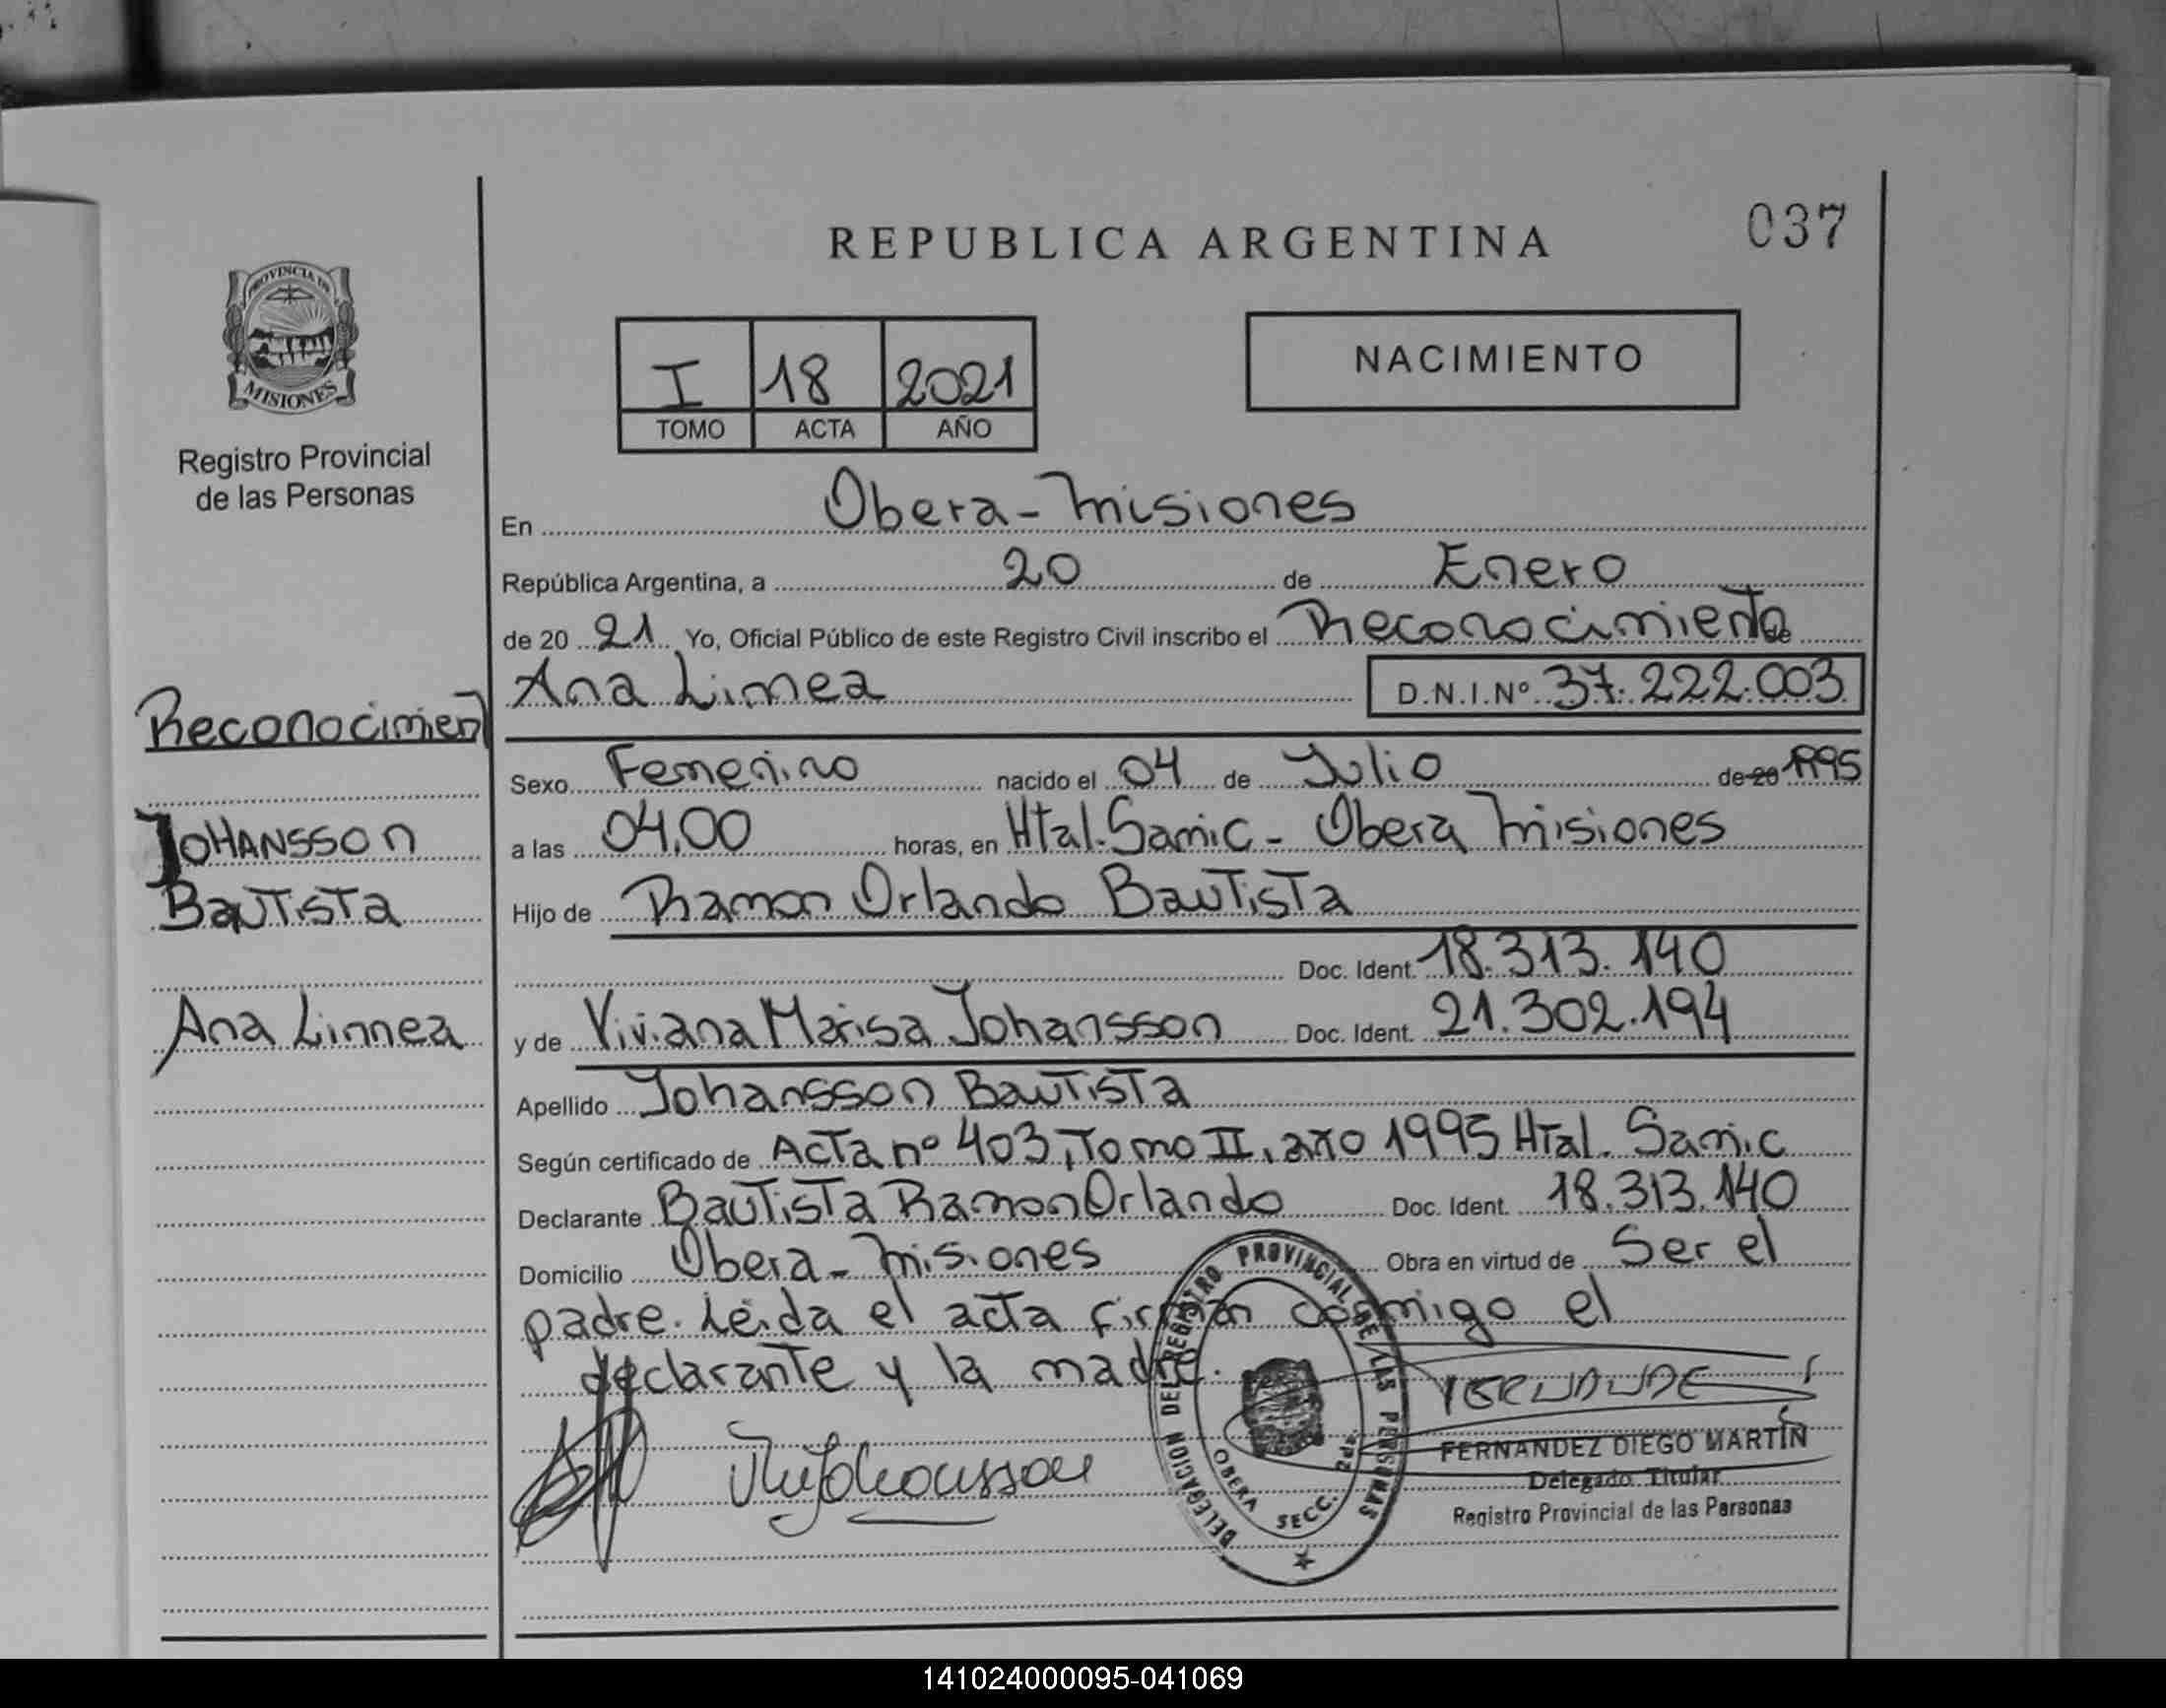 037
REPUBLICA ARGENTINA
PROVINCIA DE
MISIONES
Registro Provincial
de las Personas
I 18 2021
TOMO ACTA AÑO
NACIMIENTO
En Obera - Misiones
República Argentina, a 20 de Enero
de 20 21 Yo, Oficial Público de este Registro Civil inscribo el Reconocimiento de
Ana Linnea D.N.I.Nº 37.222.003
Reconocimient
Sexo Femenino nacido el 04 de Julio de 20 1995
a las 04,00 horas, en Htal. Samic - Obera Misiones
JOHANSSON
Bautista
Hijo de Ramon Orlando Bautista
Doc. Ident. 18.313.140
Ana Linnea
y de Viviana Marisa Johansson Doc. Ident. 21.302.194
Apellido Johansson Bautista
Según certificado de Acta nº 403, Tomo II, año 1995 Htal. Samic
Declarante Bautista Ramon Orlando Doc. Ident. 18.313.140
Domicilio Obera - Misiones Obra en virtud de Ser el
padre. Leida el acta firman conmigo el
declarante y la madre.
DELEGACION DEL REGISTRO PROVINCIAL DE LAS PERSONAS
OBERA SECC. 2da.
FERNANDEZ DIEGO MARTÍN
Delegado Titular
Registro Provincial de las Personas
141024000095-041069